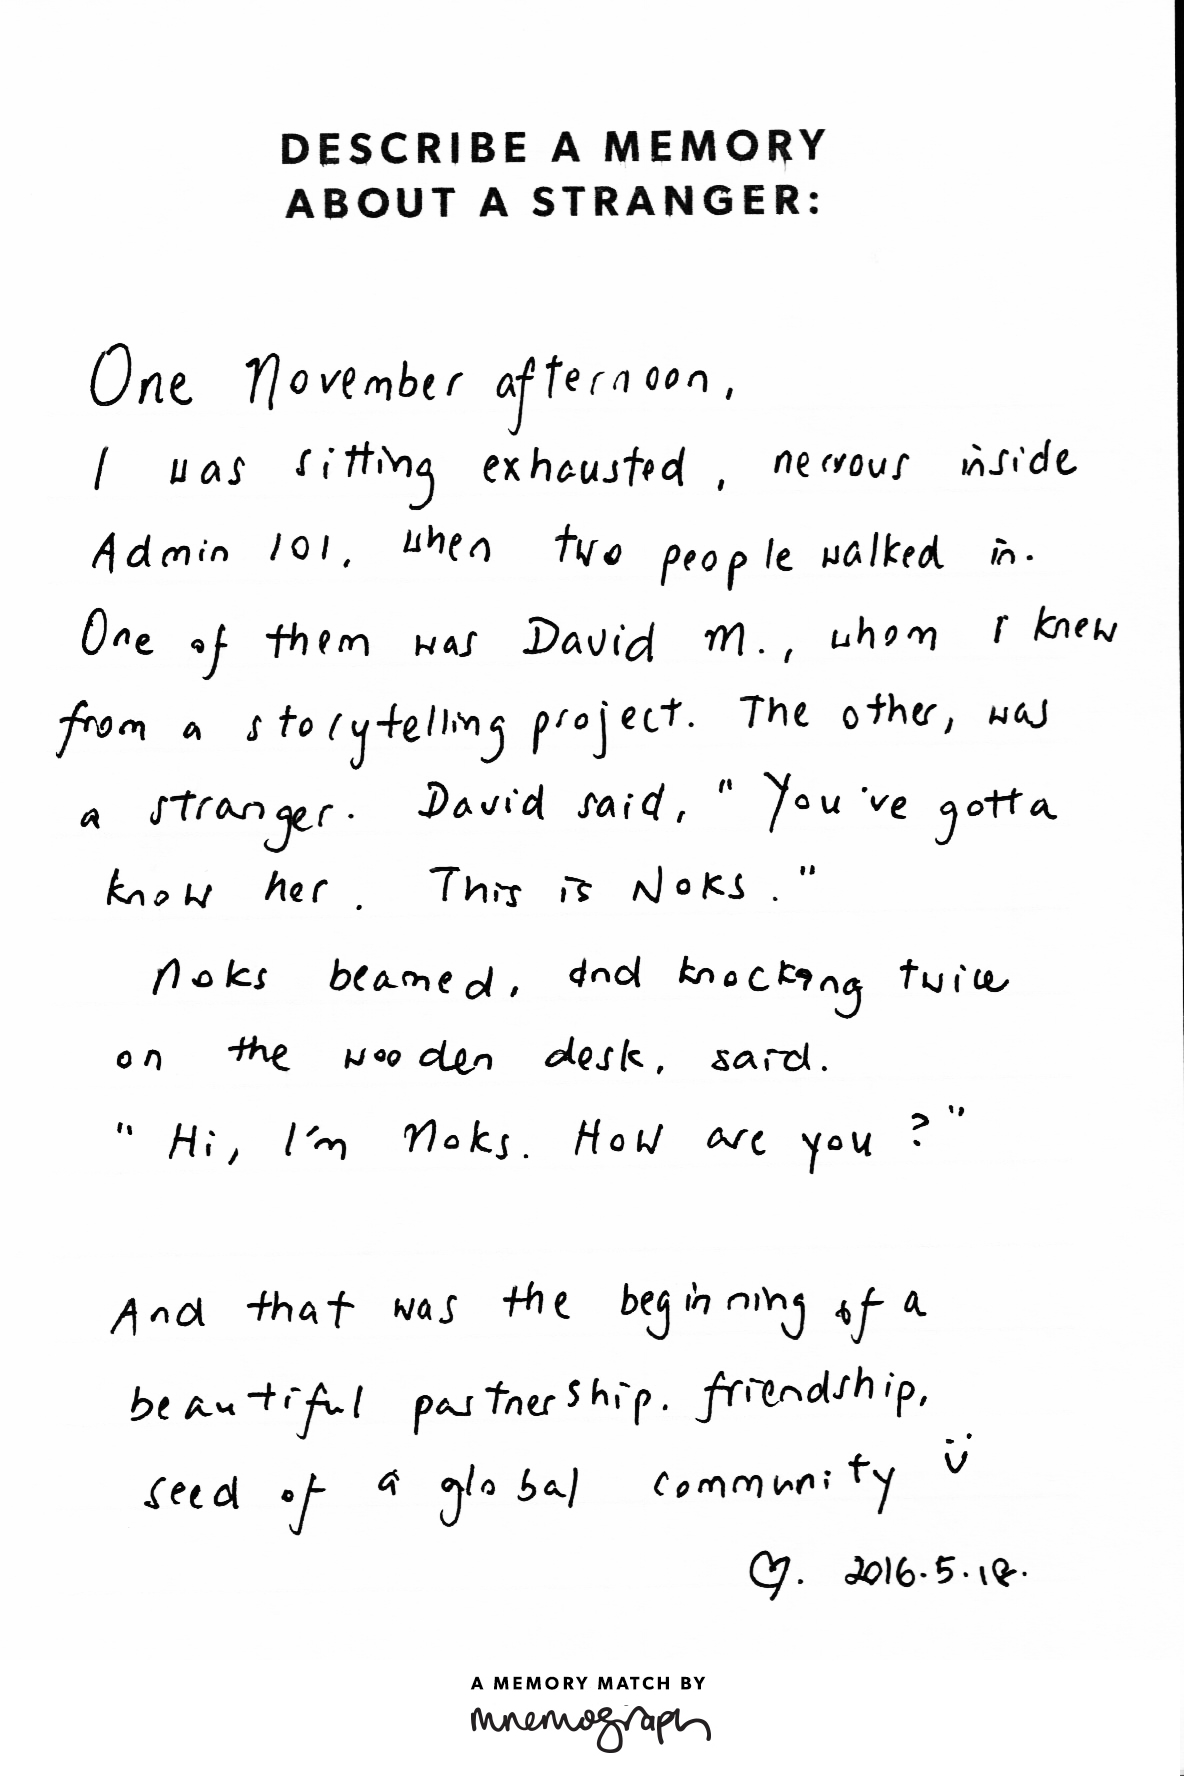 DESCRIBE A MEMORY
ABOUT A STRANGER:
One November afternoon,
I was sitting exhausted, nervous inside
Admin 101, when two people walked in.
One of them was David M., whom I knew
from a storytelling project. The other, was
a stranger. David said, "You've gotta
know her. This is Noks."
Noks beamed, and knocking twice
on the wooden desk, said.
"Hi, I'm Noks. How are you?"
And that was the beginning of a
beautiful partnership. friendship,
seed of a global community
2016.5.18.
A MEMORY MATCH BY
mnemograph